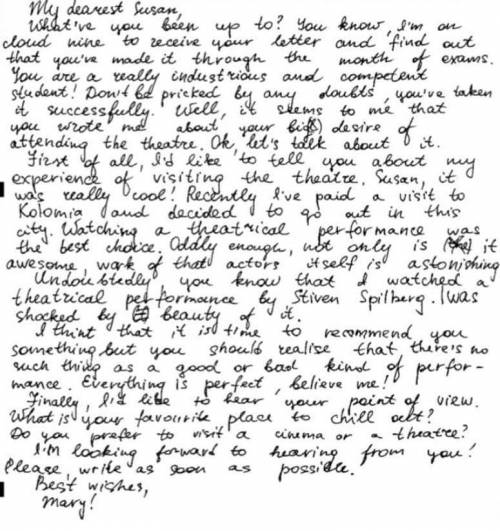 My dearest Susan,
What've you been up to? You know, I'm on
cloud nine to receive your letter and find out
that you've made it through the month of exams.
You are a really industrious and competent
student! Don't be pricked by any doubts, you've taken
it successfully. Well, it seems to me that
you wrote me about your big desire of
attending the theatre. Ok, let's talk about it.
First of all, I'd like to tell you about my
experience of visiting the theatre. Susan, it
was really cool! Recently I've paid a visit to
Kolomia and decided to go out in this
city. Watching a theatrical performance was
the best choice. Oddly enough, not only is it
awesome, work of that actors itself is astonishing
Undoubtedly you know that I watched a
theatrical performance by Stiven Spilberg. I was
shocked by beauty of it.
I think that it is time to recommend you
something, but you should realise that there's no
such thing as a good or bad kind of perfor-
mance. Everything is perfect, believe me!
Finally, I'd like to hear your point of view.
What is your favourite place to chill out?
Do you prefer to visit a cinema or a theatre?
I'm looking forward to hearing from you!
Please, write as soon as possible.
Best wishes,
Mary!